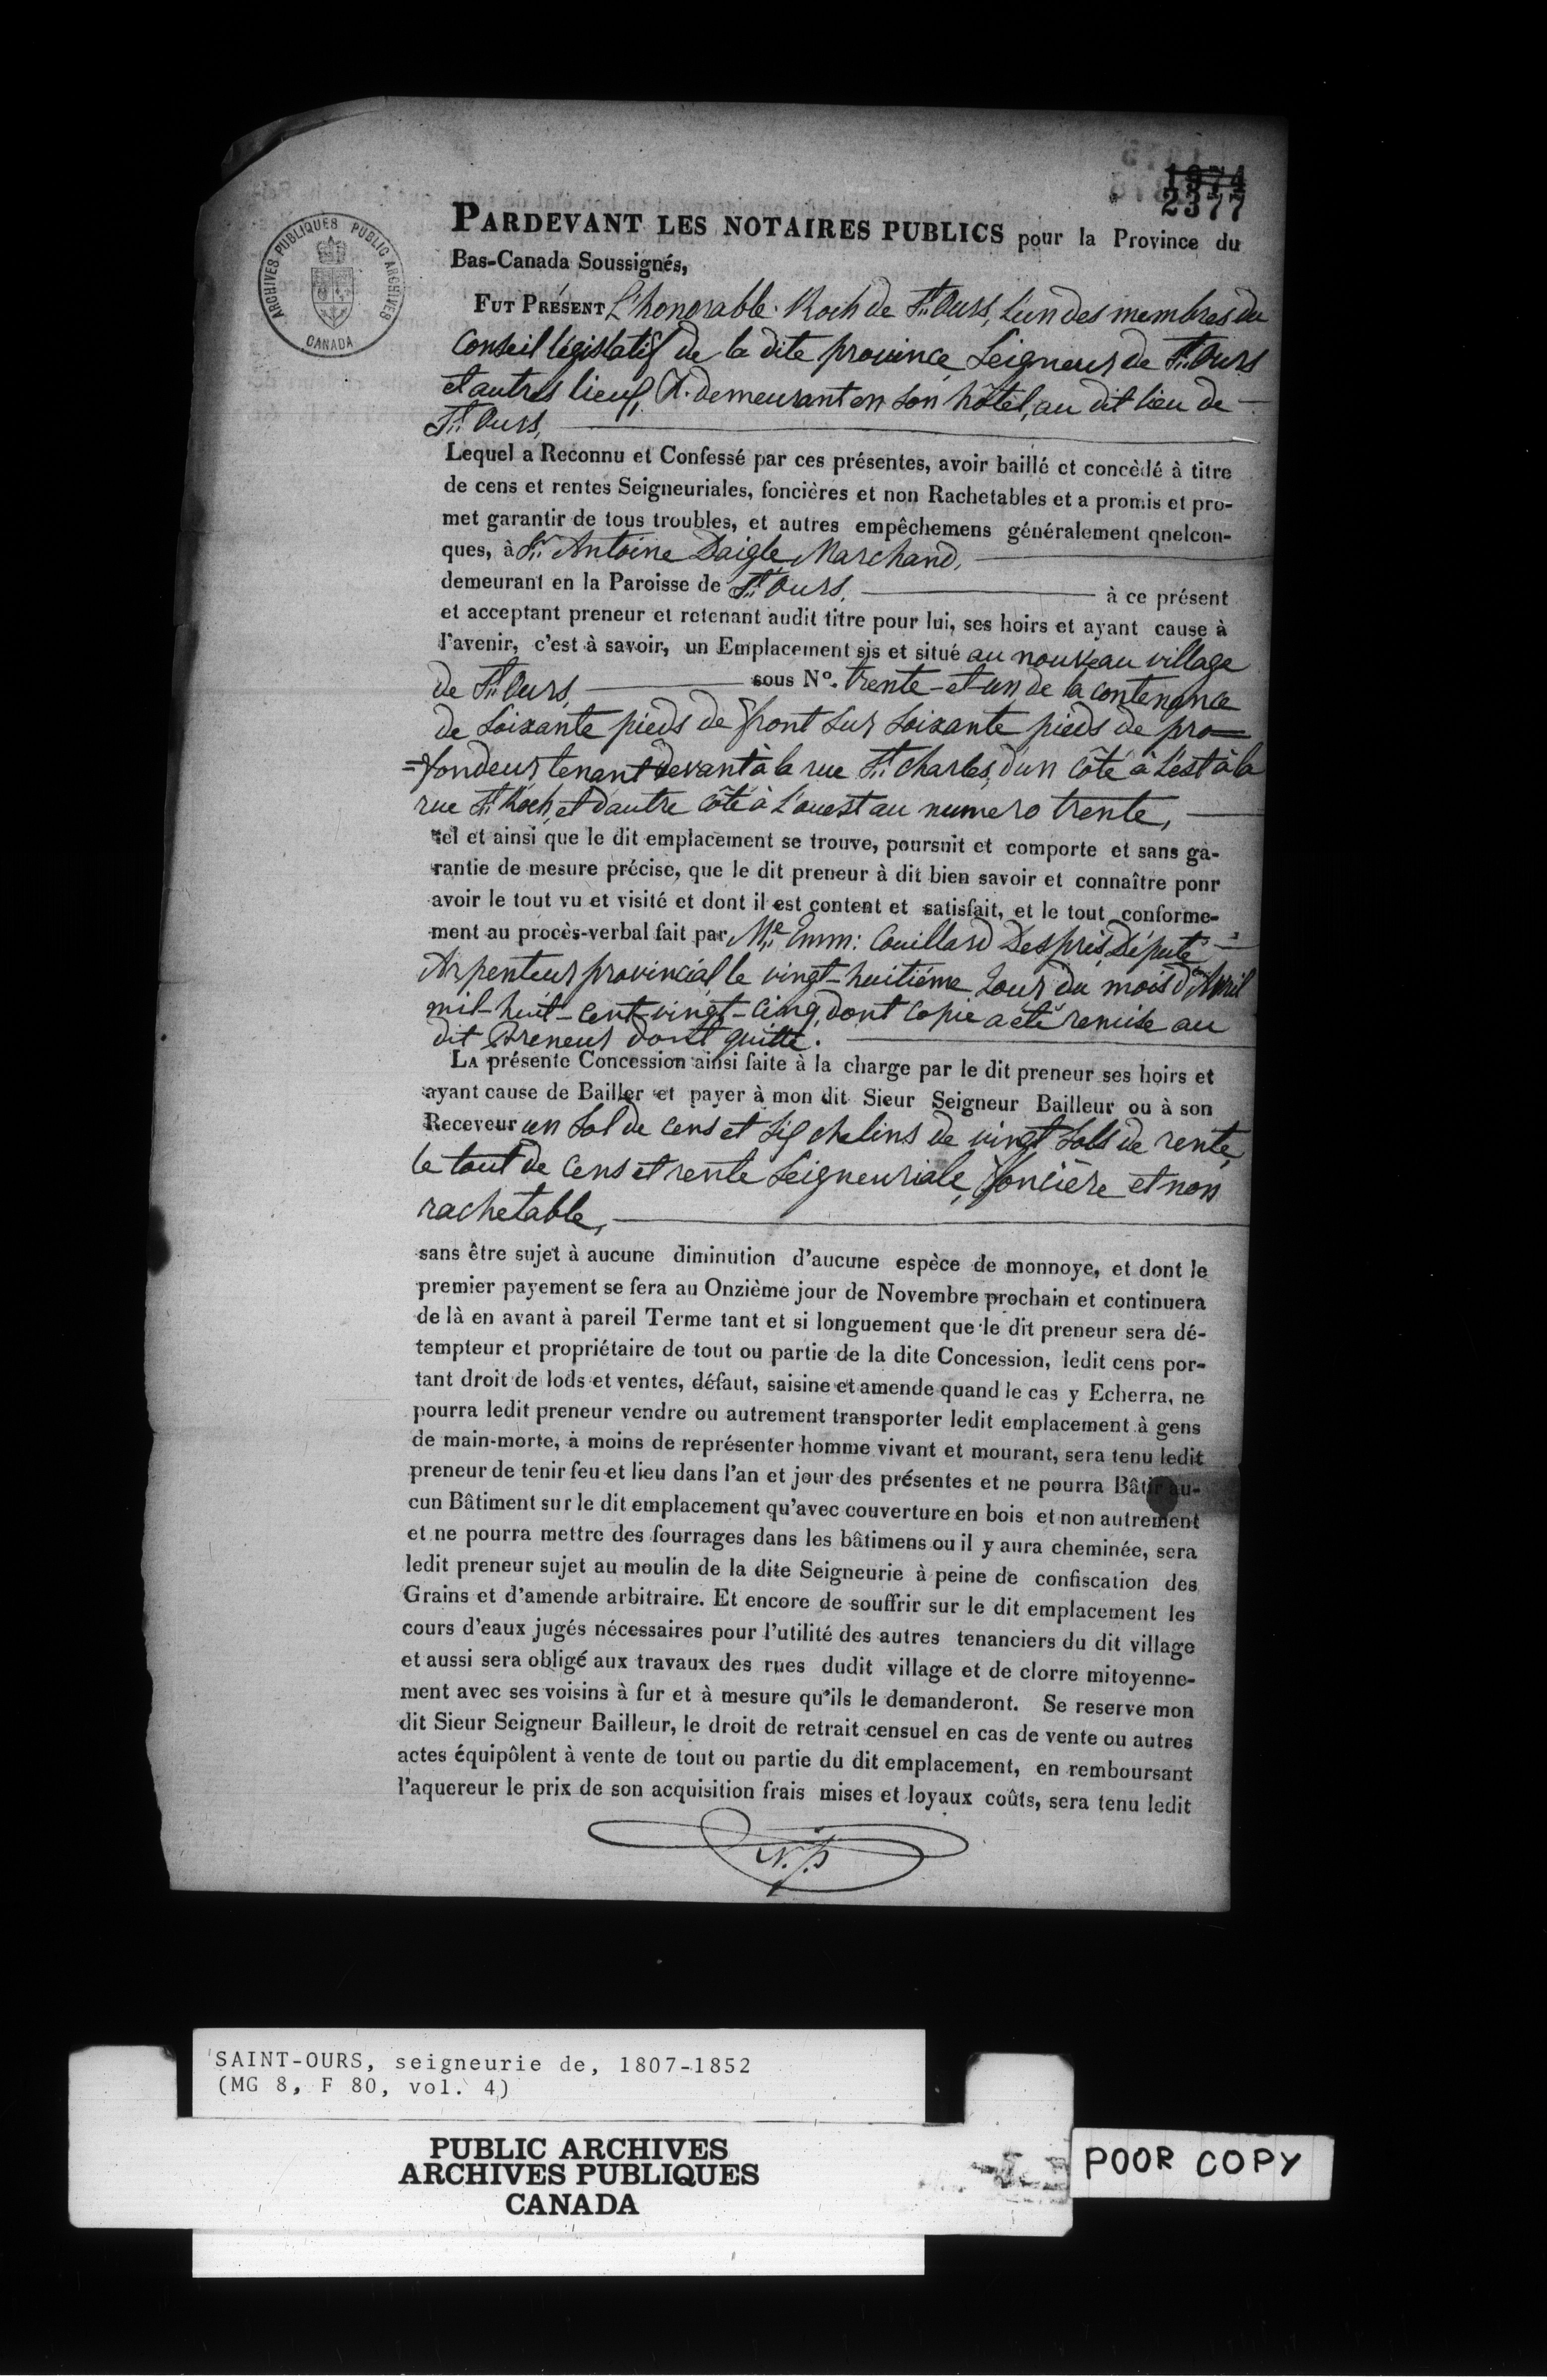 1974
2377
ARCHIVES PUBLIQUES PUBLIC ARCHIVES
CANADA
PARDEVANT LES NOTAIRES PUBLICS pour la Province du
Bas-Canada Soussignés,
FUT PRÉSENT L'honorable Roch de St. Ours, L'un des membres du
Conseil législatif de la dite province, Seigneur de St. Ours
et autres lieux, &. demeurant en son hôtel, au dit lieu de
St. Ours,
Lequel a Reconnu et Confessé par ces présentes, avoir baillé et concèdé à titre
de cens et rentes Seigneuriales, foncières et non Rachetables et a promis et pro-
met garantir de tous troubles, et autres empêchemens généralement qnelcon-
ques, à Sr. Antoine Daigle, Marchand,
demeurant en la Paroisse de St. Ours, à ce présent
et acceptant preneur et retenant audit titre pour lui, ses hoirs et ayant cause à
l'avenir, c'est à savoir, un Emplacement sis et situé au nouveau village
de St. Ours, sous No. trente-et-un de la contenance
de Soixante pieds de front sur Soixante pieds de pro=
=fondeur, tenant devant à la rue St. Charles, d'un côté à L'est à la
rue St. Roch, et d'autre côté à L'ouest au numero trente,
tel et ainsi que le dit emplacement se trouve, poursnit et comporte et sans ga-
rantie de mesure précise, que le dit preneur à dit bien savoir et connaître ponr
avoir le tout vu et visité et dont il est content et satisfait, et le tout conforme-
ment au procès-verbal fait par Me. Emm: Couillard Després, Député
Arpenteur provincial, le vingt-huitiéme Jour du mois d'Avril
mil-huit-cent-vingt-cinq, dont copie a été remise au
dit Preneur dont quitte.
LA présente Concession ainsi faite à la charge par le dit preneur ses hoirs et
ayant cause de Bailler et payer à mon dit Sieur Seigneur Bailleur ou à son
Receveur un Sol de cens et Six chelins de vingt Sols de rente,
le tout de Cens et rente Seigneuriale, foncière et non
rachetable,
sans être sujet à aucune diminution d'aucune espèce de monnoye, et dont le
premier payement se fera au Onzième jour de Novembre prochain et continuera
de là en avant à pareil Terme tant et si longuement que le dit preneur sera dé-
tempteur et propriétaire de tout ou partie de la dite Concession, ledit cens por-
tant droit de lods et ventes, défaut, saisine et amende quand le cas y Echerra, ne
pourra ledit preneur vendre ou autrement transporter ledit emplacement à gens
de main-morte, à moins de représenter homme vivant et mourant, sera tenu ledit
preneur de tenir feu et lieu dans l'an et jour des présentes et ne pourra Bâtir au-
cun Bâtiment sur le dit emplacement qu'avec couverture en bois et non autrement
et ne pourra mettre des fourrages dans les bâtimens ou il y aura cheminée, sera
ledit preneur sujet au moulin de la dite Seigneurie à peine de confiscation des
Grains et d'amende arbitraire. Et encore de souffrir sur le dit emplacement les
cours d'eaux jugés nécessaires pour l'utilité des autres tenanciers du dit village
et aussi sera obligé aux travaux des rues dudit village et de clorre mitoyenne-
ment avec ses voisins à fur et à mesure qu'ils le demanderont. Se reserve mon
dit Sieur Seigneur Bailleur, le droit de retrait censuel en cas de vente ou autres
actes équipôlent à vente de tout ou partie du dit emplacement, en remboursant
l'aquereur le prix de son acquisition frais mises et loyaux coûts, sera tenu ledit
N.P
SAINT-OURS, seigneurie de, 1807-1852
(MG 8, F 80, vol. 4)
PUBLIC ARCHIVES
ARCHIVES PUBLIQUES
CANADA
POOR COPY